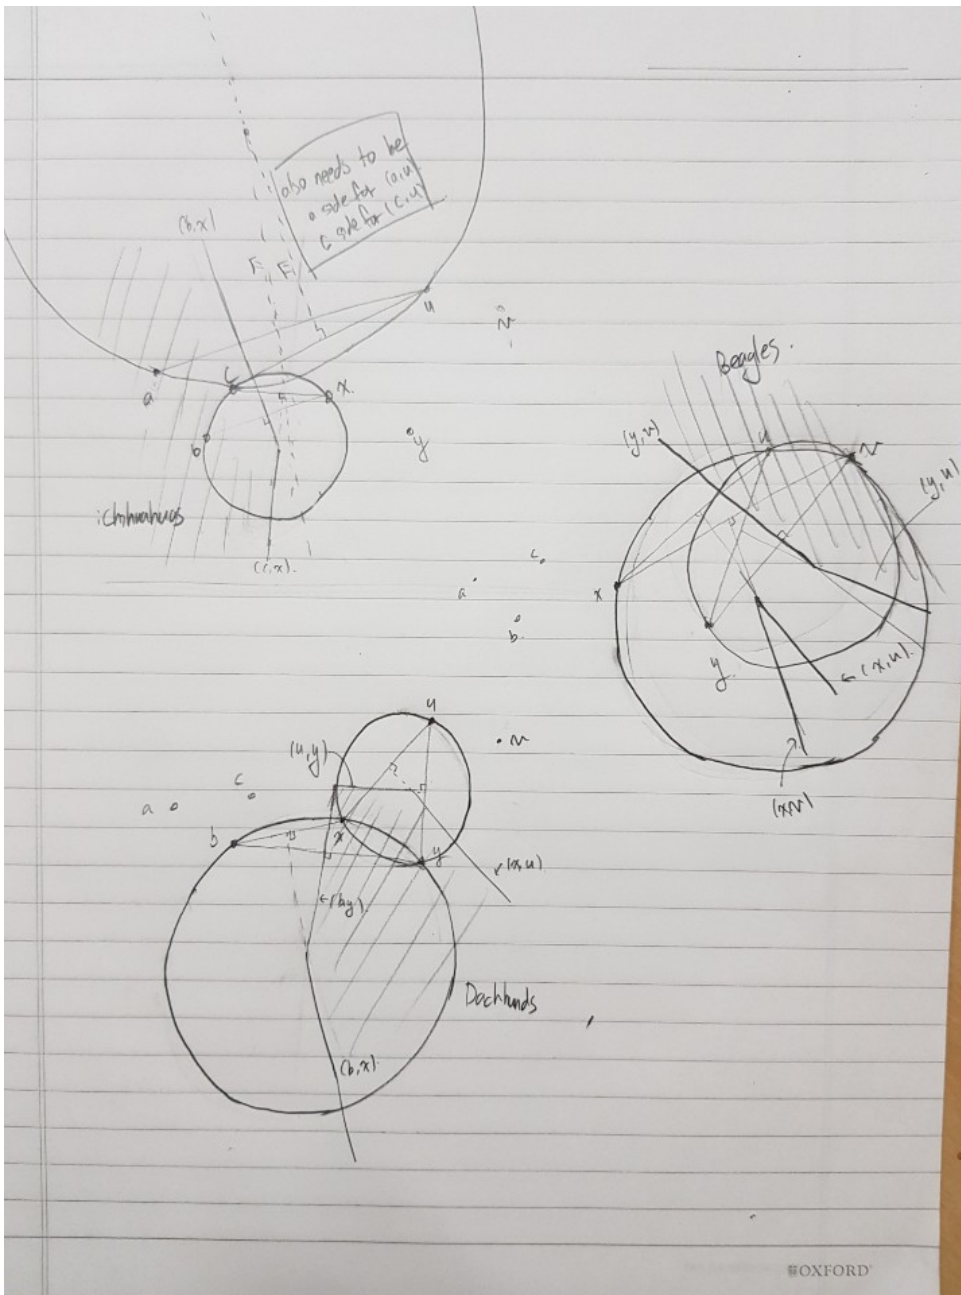 also needs to be
a side for (a,u)
c side for (c,u)
(b,x)
F
F
u
v
a
C
x
y
b
(c,x)
Beagles.
(y,v)
u
v
(y,u)
c
a
b
x
y
(x,u)
(x,v)
u
v
(u,y)
c
a
b
x
y
(x,u)
(b,y)
Dachhunds
(b,x)
OXFORD